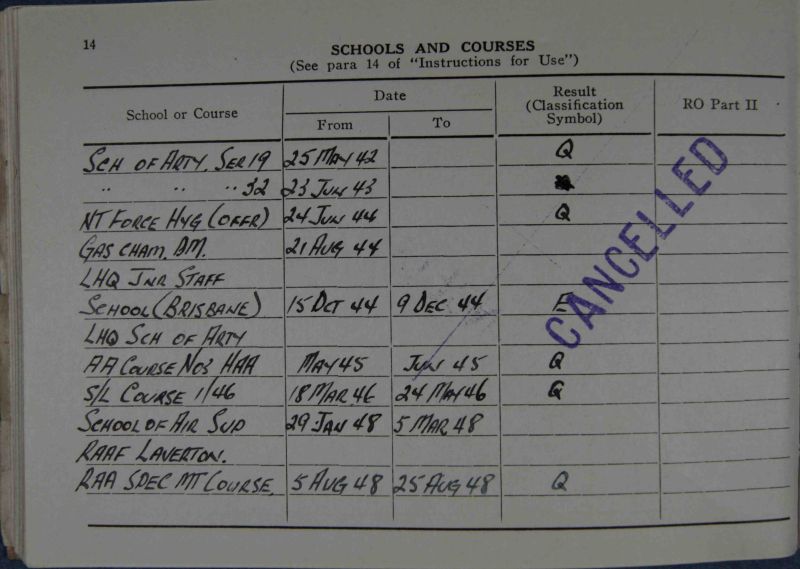 14
SCHOOLS AND COURSES
(See para 14 of "Instructions for Use")
School or Course Date Result (Classification Symbol) RO Part II
From To
SCH OF ARTY. SER 19 25 MAY 42 Q
" " " 32 23 JUN 43
NT FORCE HYG (OFFR) 24 JUN 44 Q
GAS CHAM. DM. 21 AUG 44
LHQ JNR STAFF
SCHOOL (BRISBANE) 15 OCT 44 9 DEC 44
LHQ SCH OF ARTY
AA COURSE No3 HAA MAY 45 JUN 45 Q
S/L COURSE 1/46 18 MAR 46 24 MAY 46 Q
SCHOOL OF AIR SUP 29 JAN 48 5 MAR 48
RAAF LAVERTON.
RAA SPEC MT COURSE. 5 AUG 48 25 AUG 48 Q
CANCELLED